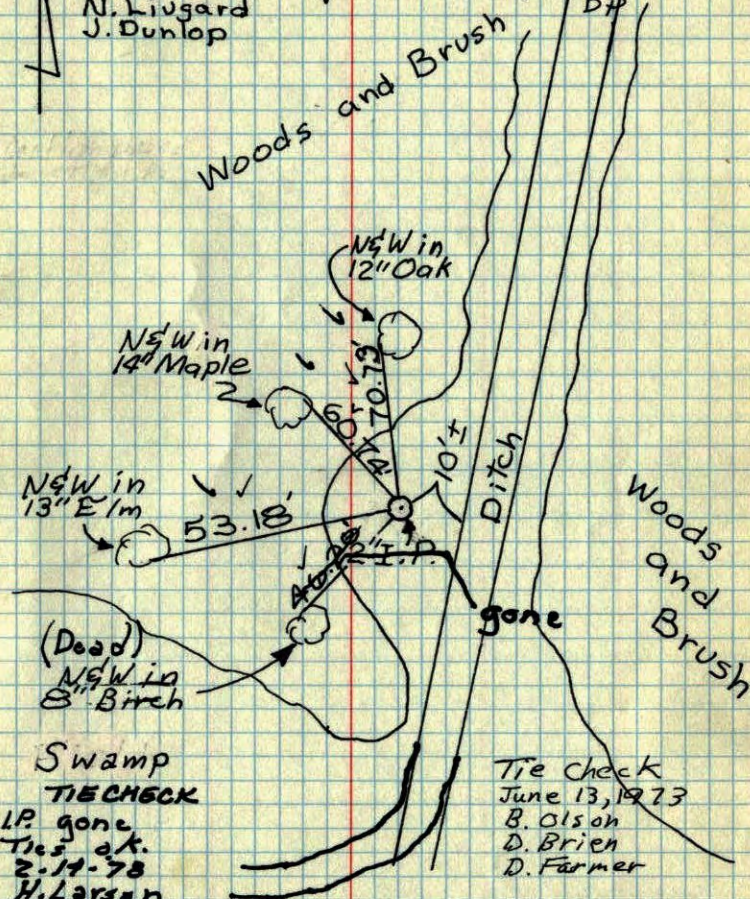 N. Livgard
J. Dunlop
Woods and Brush
N&W in
12" Oak
N&W in
14" Maple
70.73'
60.74'
10'±
Ditch
N&W in
13" Elm
53.18'
2" I.P.
gone
Woods
and
Brush
(Dead)
N&W in
8" Birch
Swamp
TIE CHECK
I.P. gone
Ties o.k.
2-14-78
H. Larsen
Tie Check
June 13, 1973
B. Olson
D. Brien
D. Farmer